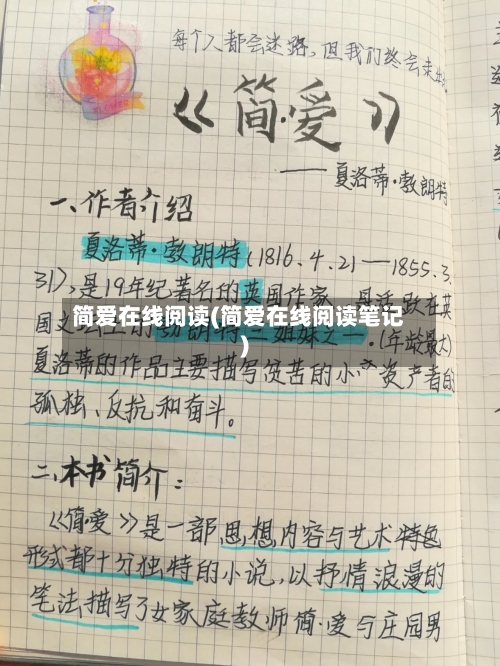 每个人都会迷路,但我们终会走出
《简·爱》
——夏洛蒂·敦朗特
一、作者介绍
夏洛蒂·敦朗特(1816.4.21—1855.3.
31),是19年纪著名的英国作家
简爱在线阅读(简爱在线阅读笔记
)
国文 三姐妹之一.(年龄最大)
夏洛蒂的作品主要描写贫苦的小资产者的
孤独、反抗和奋斗。
二、本书简介:
《简·爱》是一部思想内容与艺术特色
形式都十分独特的小说,以抒情浪漫的
笔法描写了女家庭教师简·爱与庄园男